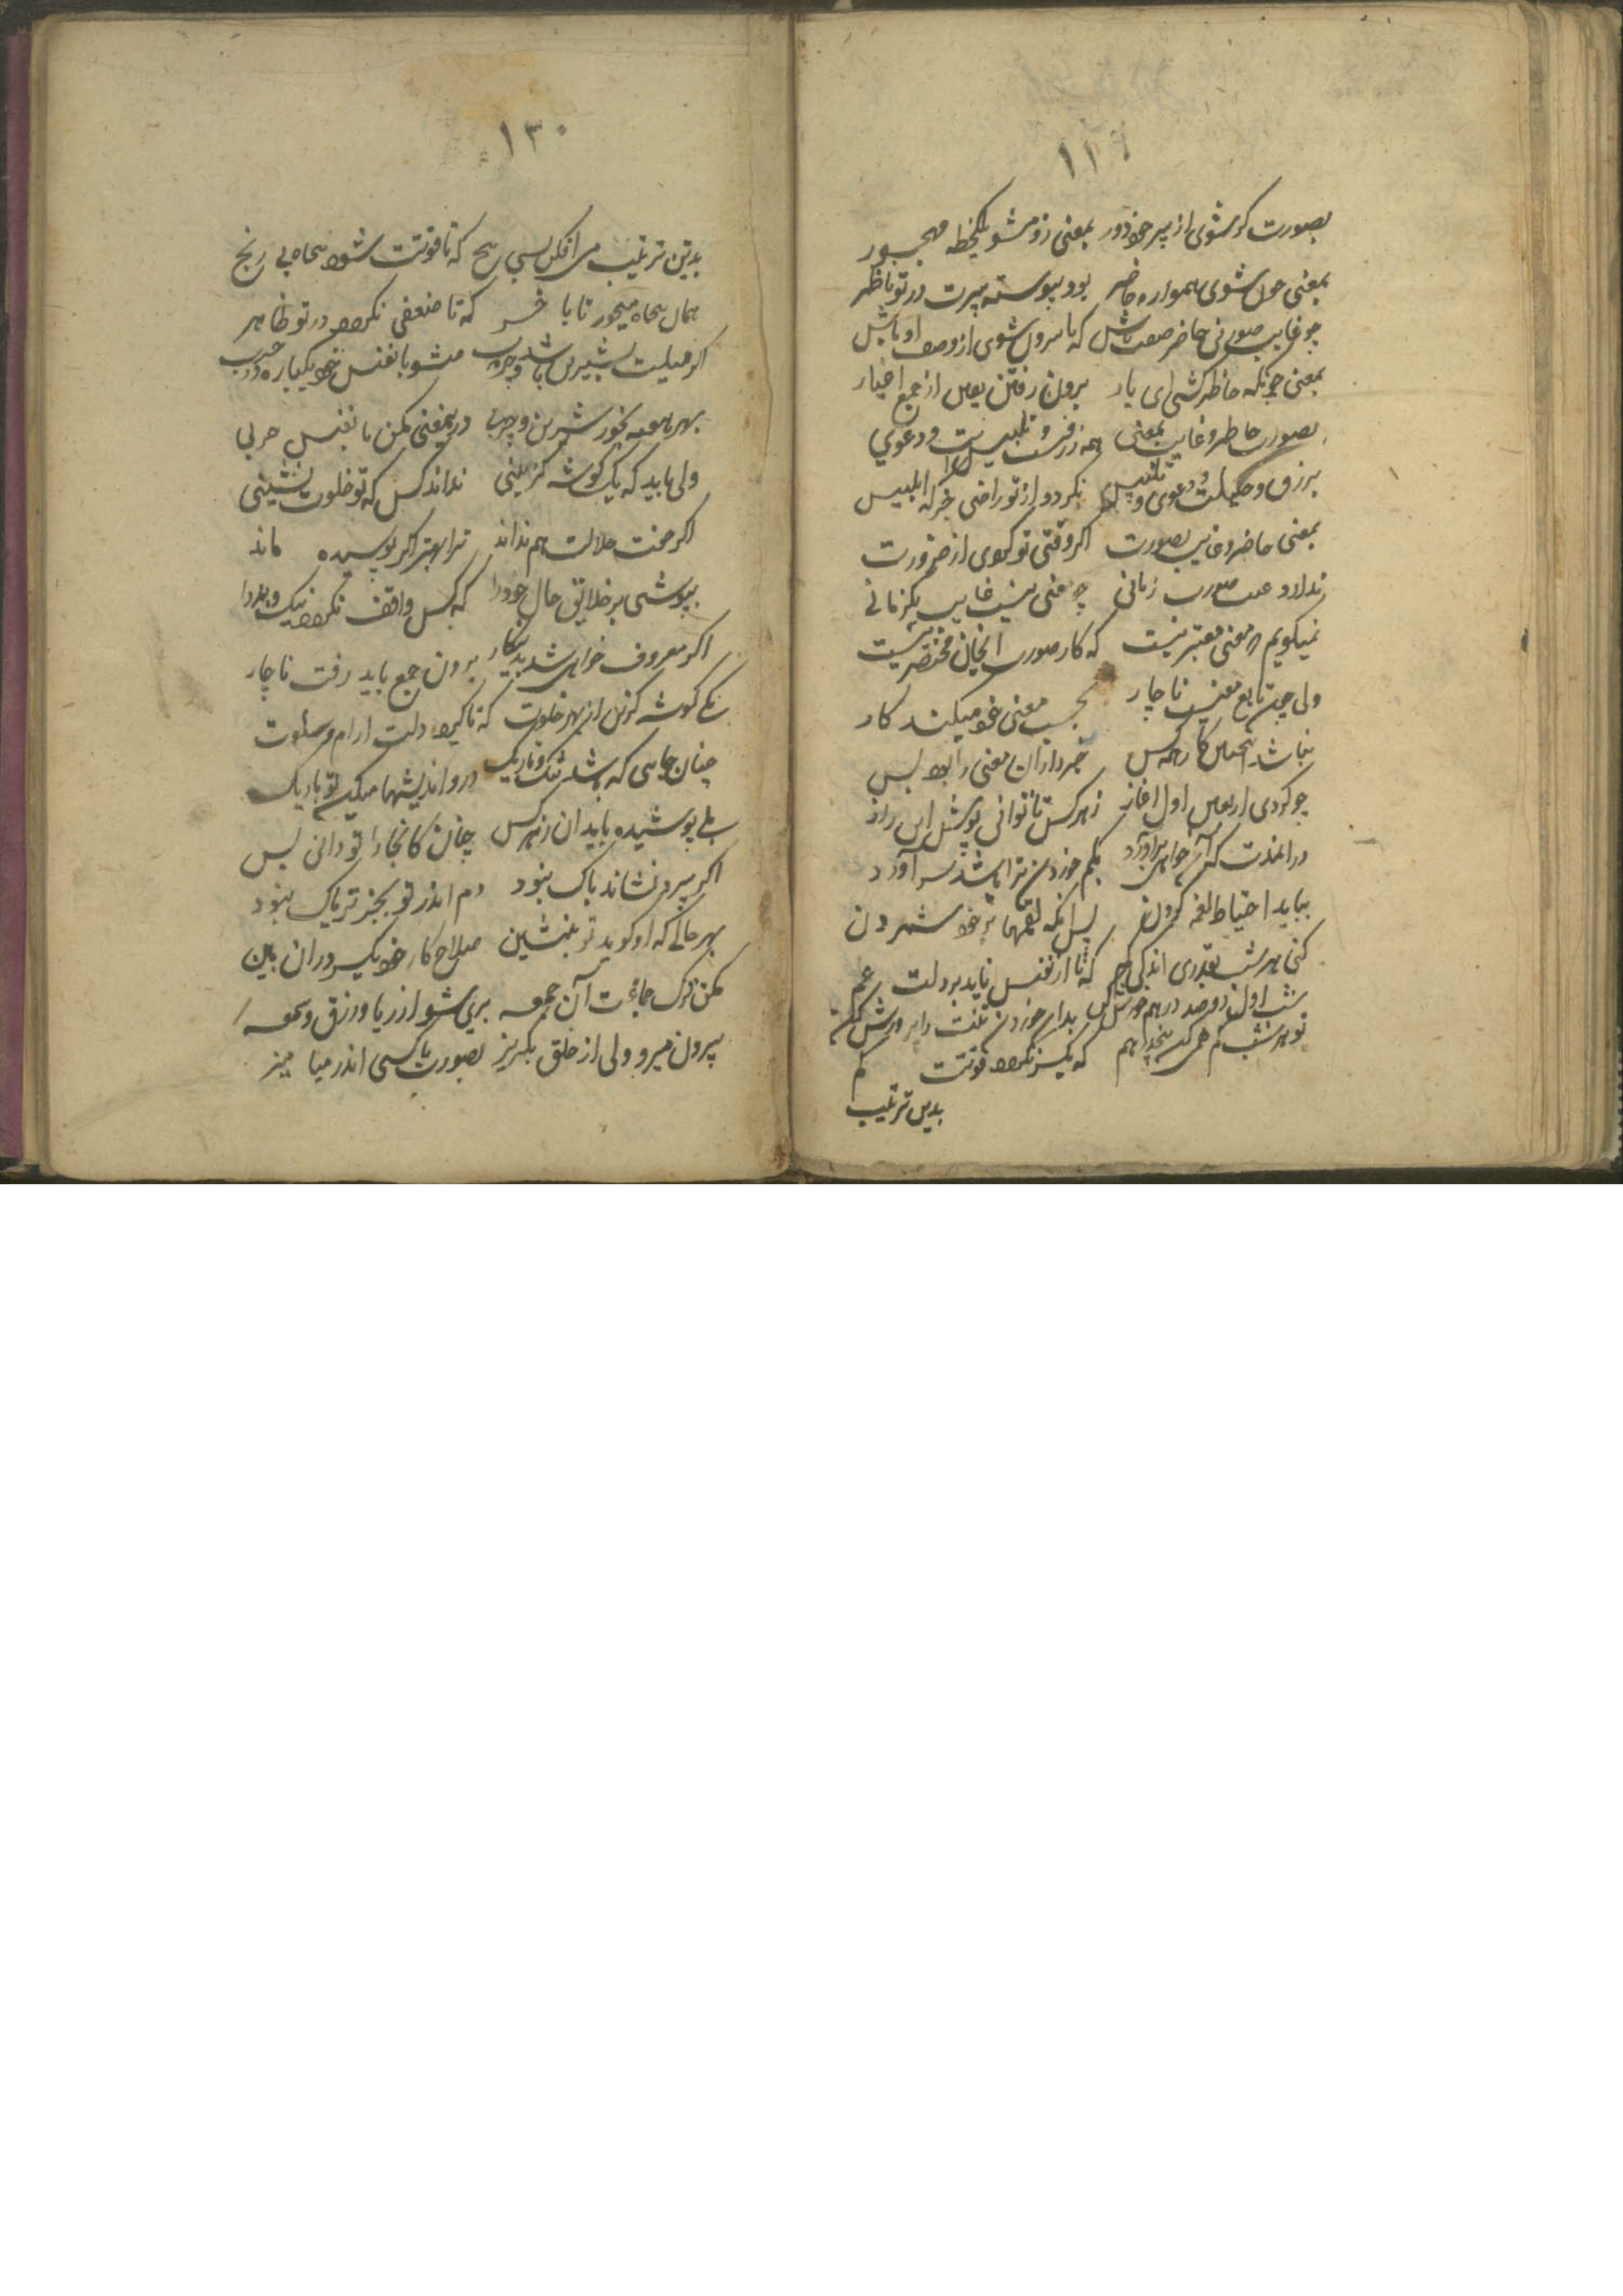 ۱۲۹
بصورت کر شوی از پیر خود دور بمعنی زو مشو یکلحظه مهجور
بمعنی چون شوی همواره حاضر بود پیوسته پیرت در تو ناظر
چو غایب صورتی حاضر صفت باش که تا بیرون شوی از وصف اوباش
بمعنی چونکه حاظر کشتی ای یار برون رفتن یقین از جمع اخیار
بصورت حاظر و غایب بمعنی همه زرقست و تلبیس است و دعوی
برزق و حیلت و دعوی و تلبیس نکردد از تو راضی جز که ابلیس
بمعنی حاضر و غایب بصورت اکر وقتی تو کردی از ضرورت
ندارد غیبت صورت زیانی چو معنی نیست غایب یکزمانی
نمیکویم که معنی معتبر نیست که کار صورت انچنان مختصر نیست
ولی چون تابع معنیست ناچار بحسب معنی خود میکند کار
نباشد اینچنین کار همه کس خبرداران معنی را بود بس
چو کردی اربعین اول اغاز ز هر کس تا توانی پوش این راز
در انمدت که آن خواهی براورد بکم خوردن ترا باشد سر آورد
بباید احتیاط لقمه کردن پس انکه لقمها بر خود شمردن
کنی هر شب بقدری اندکی کم که تا از نفس ناید بر دلت غم
شب اول دو صد درهم خورش کن بدان خوردن تنت را پرورش کن
تو هر شب کم همی کن پنجدرهم که یکسر نکردد قوتت کم
بدین ترتیب
۱۳۰
بدین ترتیب می افکن بسی پنج که تا قوتت شود پنجاه بی رنج
همان پنجاه میخور تا باخر که تا ضعفی نکردد در تو ظاهر
اکر میلت بشیرین باشد و چرب مشو با نفس خود یکباره در حرب
بهر هفته بخور شیرین و چربی درینمعنی مکن با نفس حربی
ولی باید که یک کوشه کزینی نداند کس که تو خلوت نشینی
اکر جفت حلالت هم نداند ترا بهتر اکر پوشیده ماند
بپوشی بر خلایق حال خود را که کس واقف نکردد نیک و بد را
اکر معروف خواهی شد بدینکار برون جمع باید رفت ناچار
یکی کوشه کزین از بهر خلوت که تا کیرد دلت ارام و سلوت
چنان جایی که باشد تنک و تاریک درو اندیشها میکن تو باریک
بلی پوشیده باید ان ز هر کس چنان کانجا را تو دانی بس
اکر پیرت نشاند باک نبود دم اندر تو بجز تریاک نبود
بهر حالی که او کوید تو بنشین صلاح کار خود یکسر در ان بین
مکن ترک جماعت آن جمعه بری شو از ریا و رزق و سمعه
بیرون میرو ولی از خلق بکریز بصورت با کسی اندر میامیز